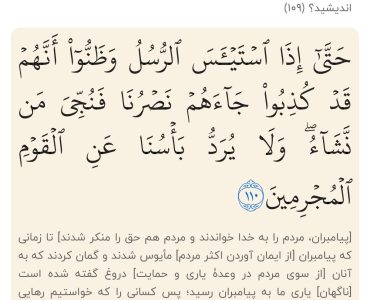 اندیشید؟ (۱۰۹)
حَتَّىٰٓ إِذَا ٱسۡتَيۡـَٔسَ ٱلرُّسُلُ وَظَنُّوٓاْ أَنَّهُمۡ
قَدۡ كُذِبُواْ جَآءَهُمۡ نَصۡرُنَا فَنُجِّيَ مَن
نَّشَآءُۖ وَلَا يُرَدُّ بَأۡسُنَا عَنِ ٱلۡقَوۡمِ
ٱلۡمُجۡرِمِينَ ١١٠
[پیامبران، مردم را به خدا خواندند و مردم هم حق را منکر شدند] تا زمانی
که پیامبران [از ایمان آوردن اکثر مردم] مأیوس شدند و گمان کردند که به
آنان [از سوی مردم در وعدهٔ یاری و حمایت] دروغ گفته شده است
[ناگهان] یاری ما به پیامبران رسید؛ پس کسانی را که خواستیم رهایی